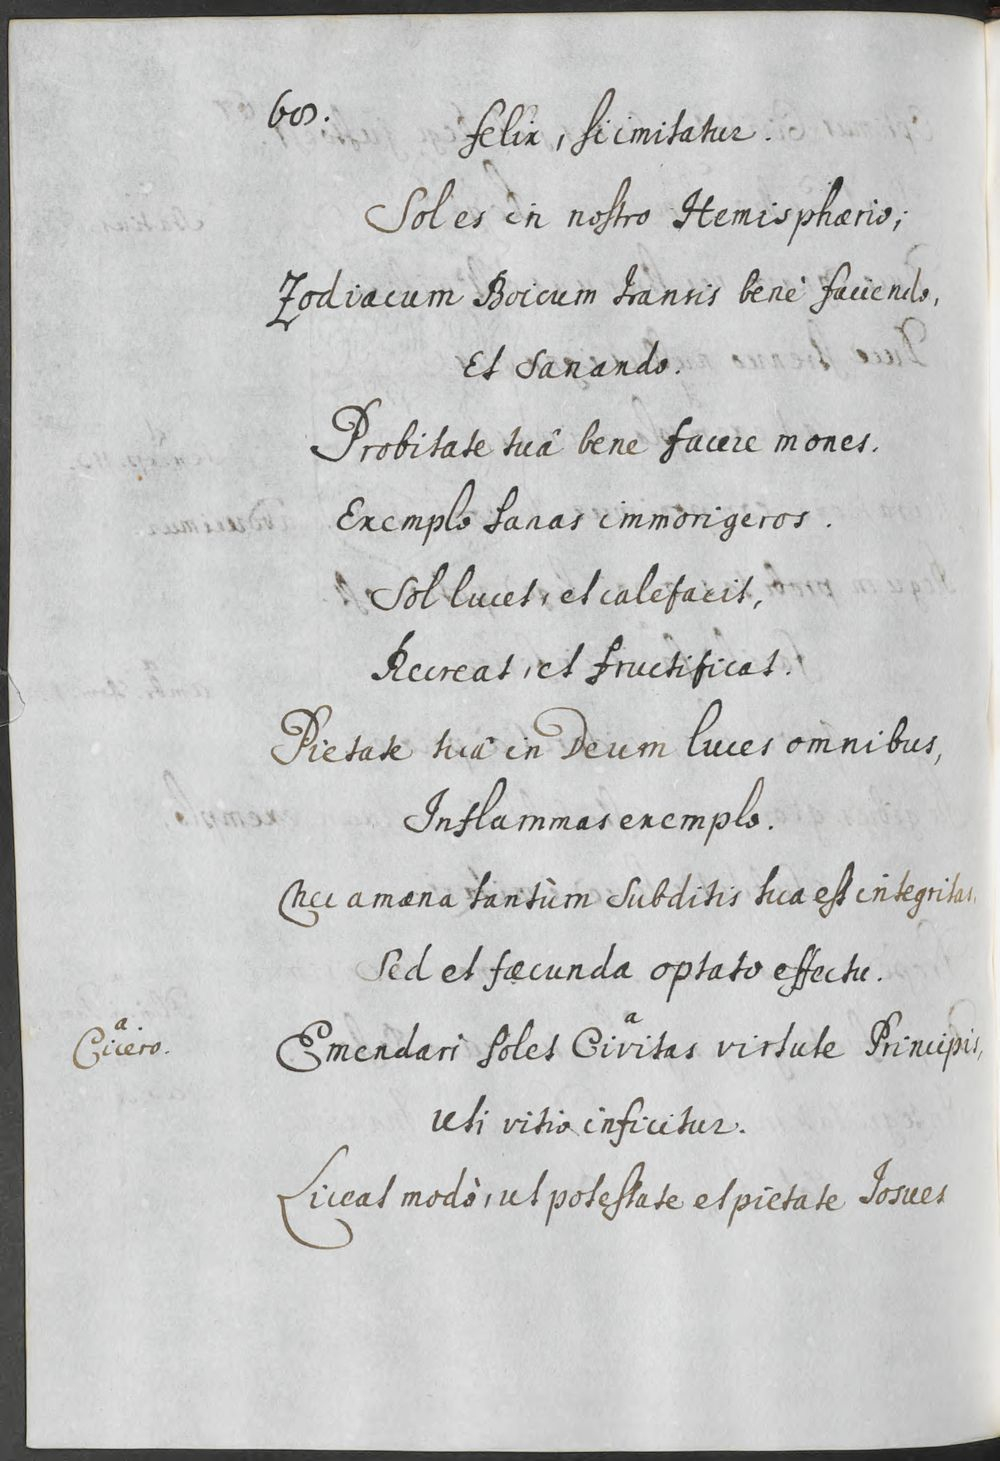 68.
felix, si imitatur.
Sol es in nostro Hemisphærio;
Zodiacum Boicum transis benè faciendo,
Et sanando.
Probitate tuâ bene facere mones.
Exemplo sanas immorigeros.
Sol lucet, et calefacit,
Recreat, et fructificat.
Pietate tuâ in Deum luces omnibus,
Inflammas exemplo.
Nec amæna tantùm subditis tua est integritas,
Sed et fæcunda optato effectu.
a
Cicero.
Emendari solet Civitas a virtute Principis,
uti vitio inficitur.
Liceat modò, ut potestate et pietate Iosues